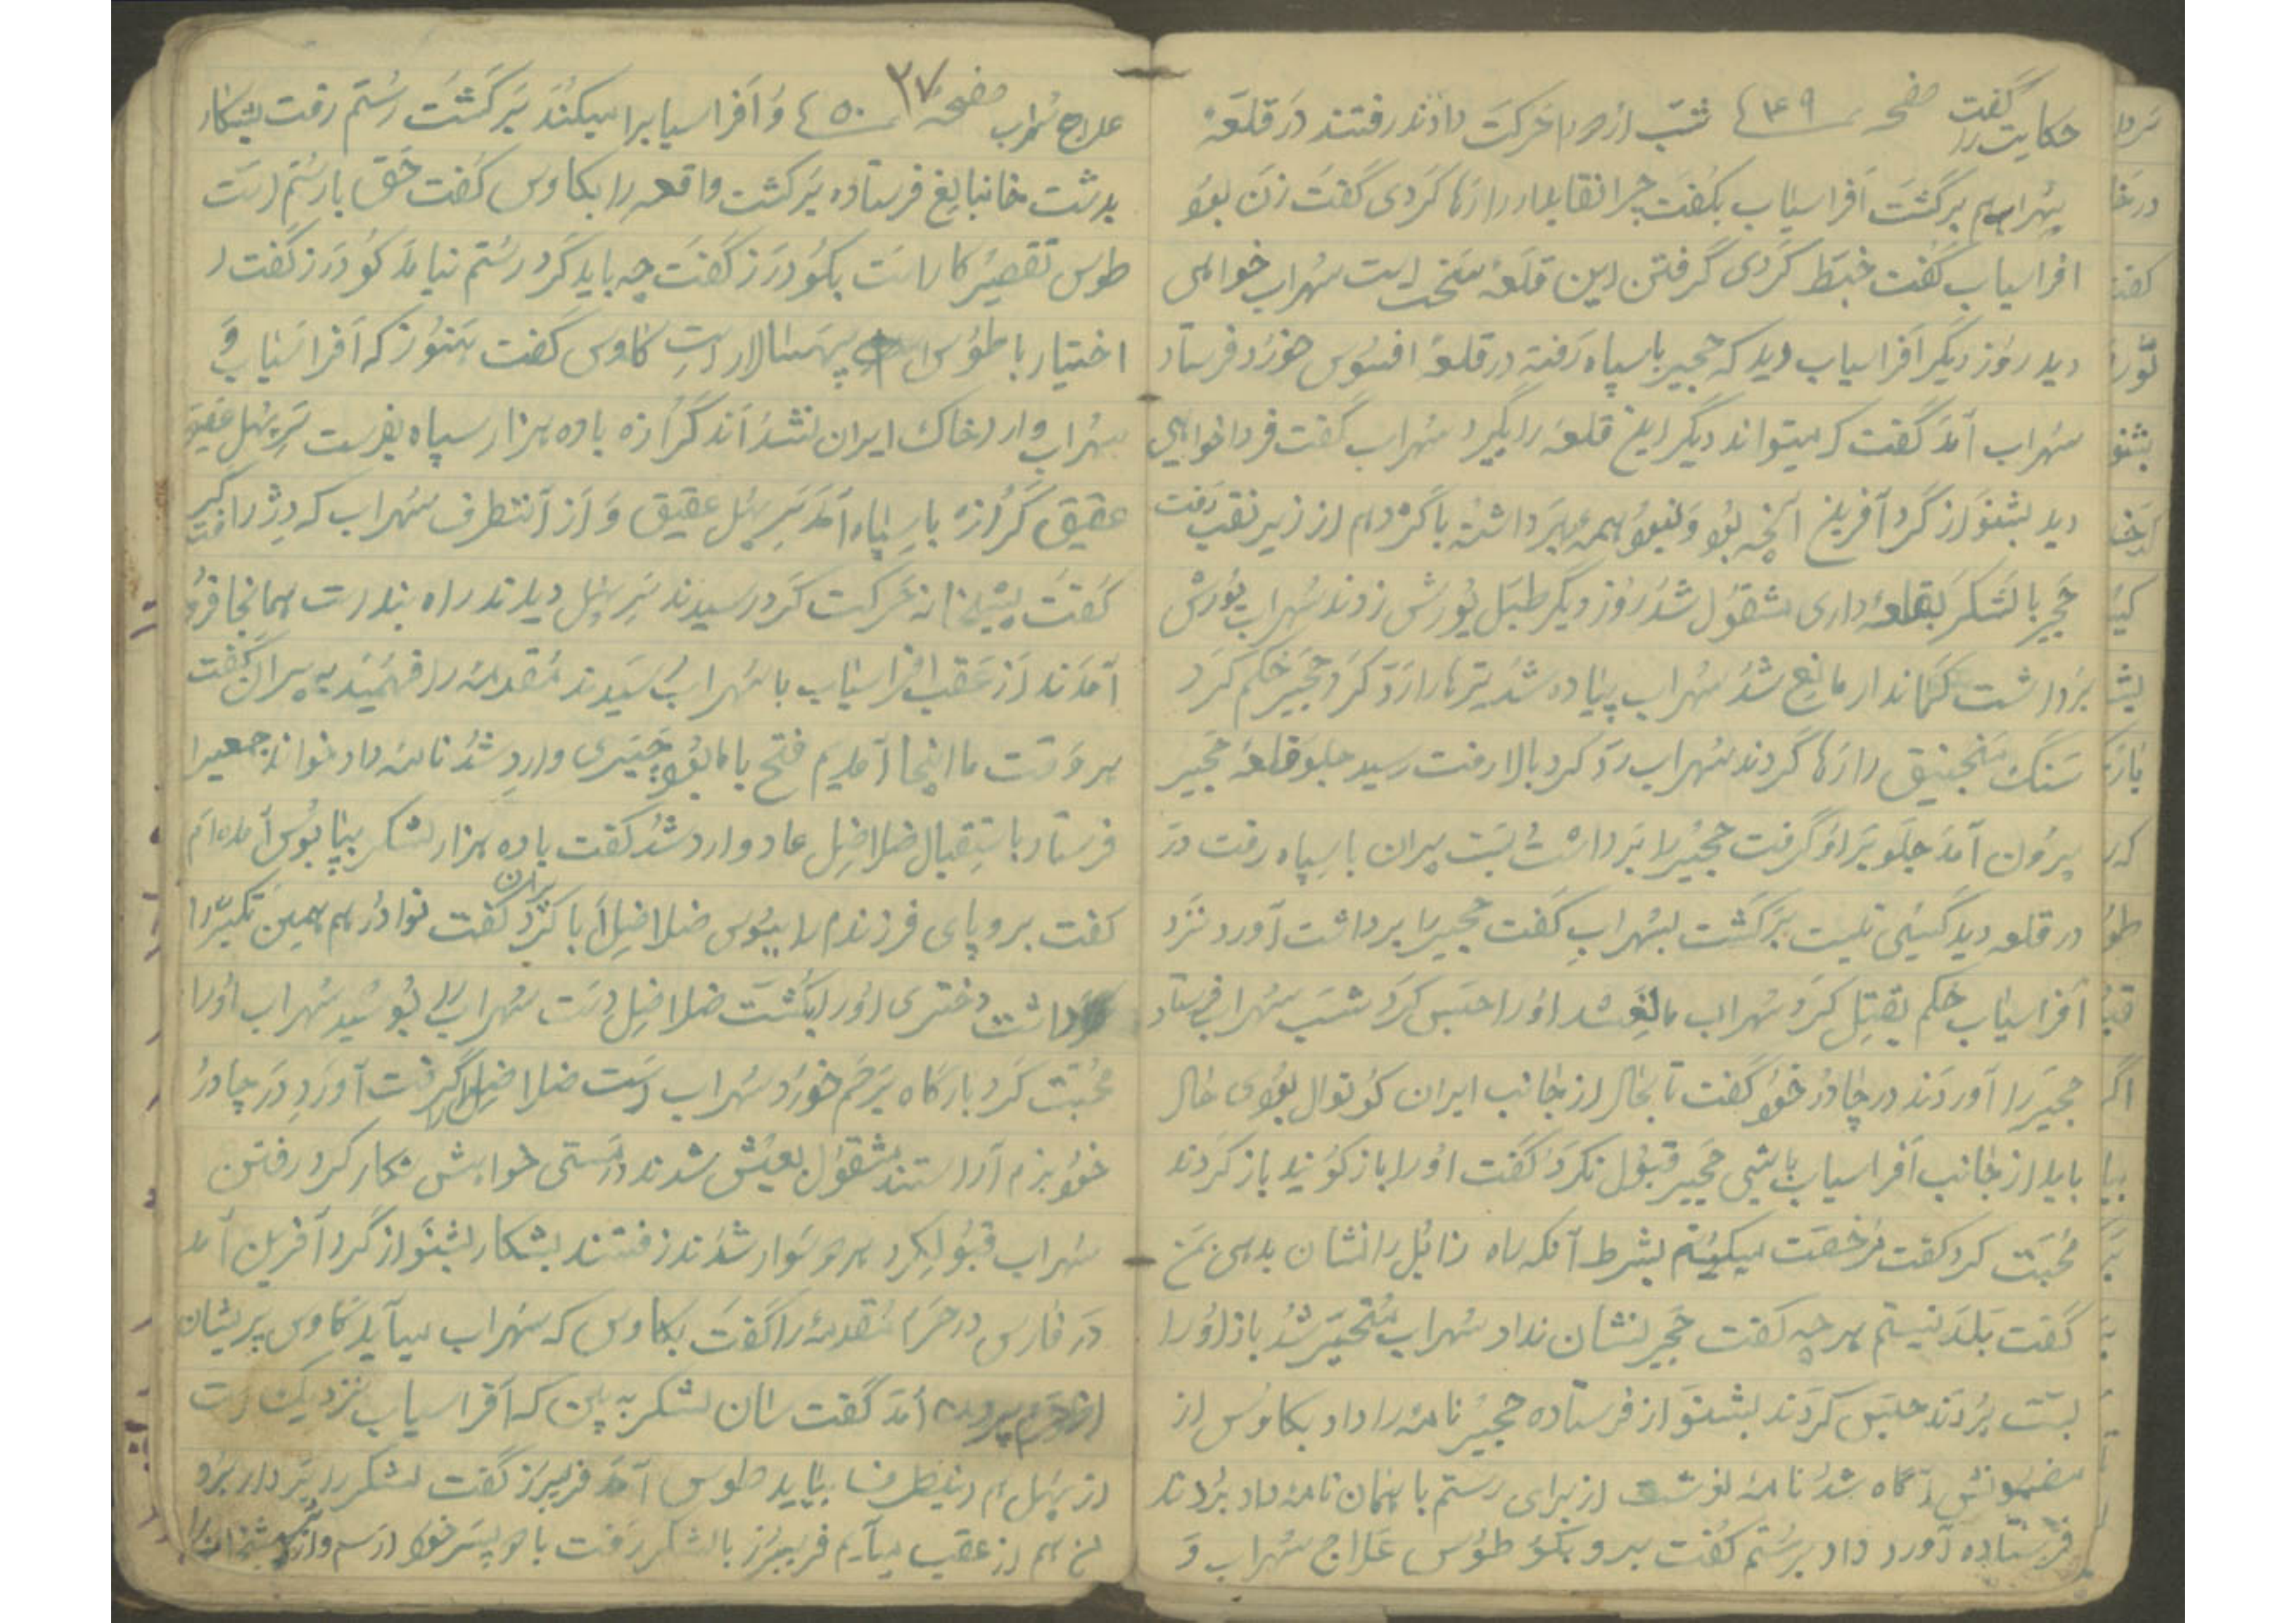 حکایت را گفت صفحه ۴۴۹ شب از در را حرکت دادند رفتند در قلعهٔ
سهراب هم برگشت افراسیاب بگفت چرا نقابدار را رها کردی گفت زن بود
افراسیاب گفت خبط کردی گرفتن این قلعه سخت است سهراب خواهی
دید روز دیگر افراسیاب دید که حجیر با سپاه رفته در قلعه افسوس خورد فرستاد
سهراب آمد گفت که میتواند دیگر این قلعه را بگیرد سهراب گفت فردا خواهی
دید بشنو از گرد آفرین آنچه بود و نبود همه برداشته با گژدهم از زیر نقب رفت
حجیر با لشکر بقلعه داری مشغول شد روز دیگر طبل یورش زدند سهراب یورش
برداشت کماندار مانع شد سهراب پیاده شد تیرها را رد کرد حجیر حکم کرد
سنگ منجنیق را رها کردند سهراب رد کرد بالا رفت رسید جلو قلعه حجیر
بیرون آمد جلو بر او گرفت حجیر را برداشت بست پیران با سپاه رفت در
در قلعه دید کسی نیست برگشت بسهراب گفت حجیر را برداشت آورد نزد
افراسیاب حکم بقتل کرد سهراب مانع شد او را حبس کرد شب سهراب فرستاد
حجیر را آوردند در چادر خود گفت تا بحال از جانب ایران کوتوال بودی حال
باید از جانب افراسیاب باشی حجیر قبول نکرد گفت او را باز کنید باز کردند
محبت کرد گفت مرخصت میکنم بشرط آنکه راه زابل را نشان بدهی بمن
گفت بلد نیستم هر چه گفت حجیر نشان نداد سهراب متحیر شد باز او را
بست بردند حبس کردند بشنو از فرستاده حجیر نامه را داد بکاوس از
مضمونش آگاه شد نامه نوشت از برای رستم با پیمان نامه داد بردند
فرستاده آورد داد برستم گفت برو بگو طوس علاج سهراب و
علاج سهراب صفحه ۴۵۰ ۳۷ و افراسیاب را میکند برگشت رستم رفت بشکار
بدشت خانبالیغ فرستاده برگشت واقعه را بکاوس گفت حق با رستم است
طوس تقصیر کار است بگودرز گفت چه باید کرد رستم نیامد گودرز گفت
اختیار با طوس سپهسالار است کاوس گفت هنوز که افراسیاب و
سهراب وارد خاک ایران نشده‌اند گرازه با ده هزار سپاه بفرست سر پل عقیق
عقیق گرازه با سپاه آمد سر پل عقیق و از آنطرف سهراب که دژ را گرفت
گفت پیشخانه حرکت کرد رسیدند سر پل دیدند راه بند است همانجا فرو
آمدند از عقب افراسیاب با سهراب رسیدند مقدمه را فهمید به پیران گفت
هر وقت ما اینجا آمدیم فتح با ما بود چپری وارد شد نامه داد خواند جمعی را
فرستاد باستقبال ضلاضل عاد وارد شد گفت با ده هزار لشکر بپا بوس آمده‌ام
گفت برو پای فرزندم را ببوس ضلاضل ابا کرد پیران گفت نوادر هم همین تکبر را
داشت دختری او را بکشت ضلاضل دست سهراب را بوسید سهراب او را
محبت کرد بارگاه برهم خورد سهراب دست ضلاضل را گرفت آورد در چادر
خود بزم آراستند مشغول بعیش شدند در مستی خواهش شکار کرد رفتن
سهراب قبول کرد هر دو سوار شدند رفتند بشکار بشنو از گرد آفرین آمد
در فارس در حرم مقدمه را گفت بکاوس که سهراب میآید کاوس پریشان
از حرم بیرون آمد گفت سان لشکر به بین که افراسیاب نزدیک است
از پل هم اینطرف بیاید طوس آمد فریبرز گفت لشکر را بردار برو
من هم از عقب میآیم فریبرز با لشکر رفت با دو پسر خود